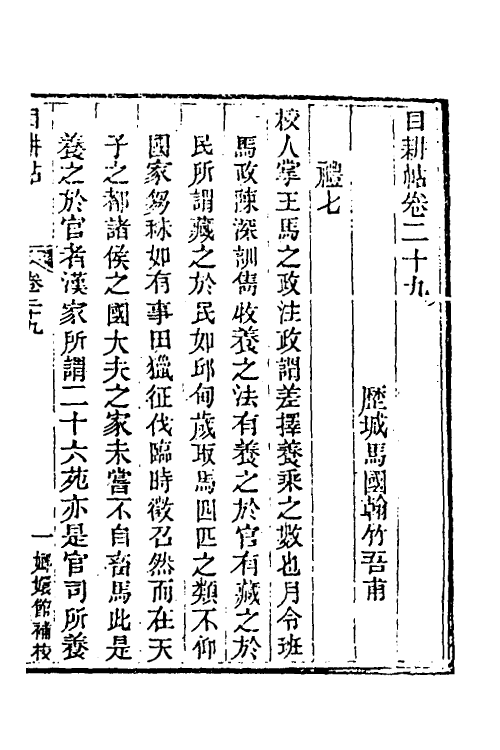 目耕帖卷二十九
歷城馬國翰竹吾甫
禮七
校人掌王馬之政注政謂差擇養乘之數也月令班
馬政陳深訓雋收養之法有養之於官有藏之於
民所謂藏之於民如邱甸歲取馬四匹之類不仰
國家芻秣如有事田獵征伐臨時徵召然而在天
子之都諸侯之國大夫之家未嘗不自畜馬此是
養之於官者漢家所謂二十六苑亦是官司所養
目耕帖
卷二十九
一
嫏嬛館補校